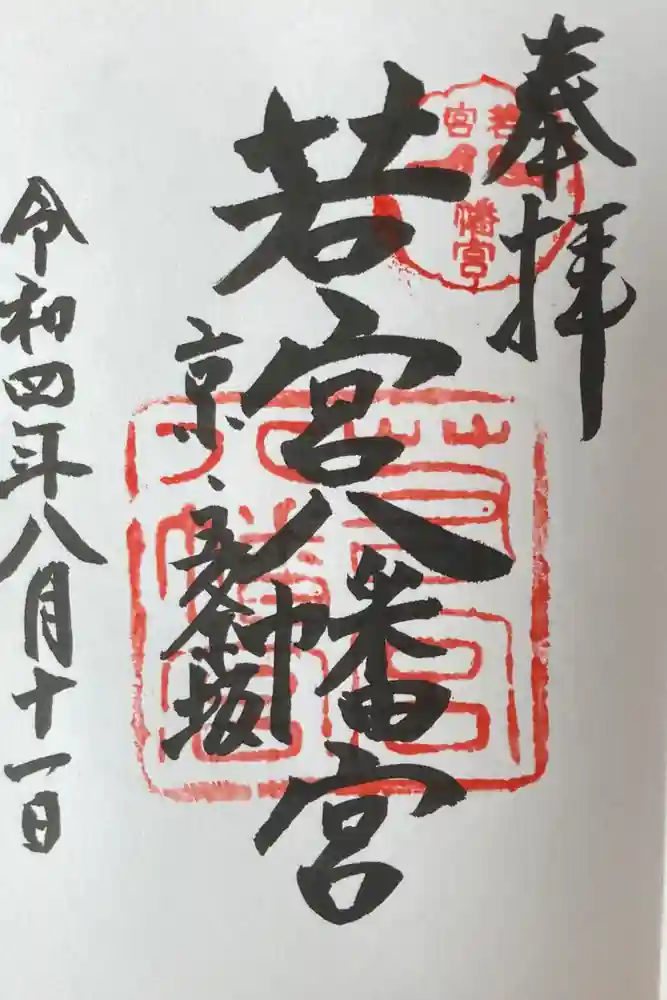 奉拝
若宮八幡宮
京 五条坂
令和四年八月十一日
若宮
幡宮